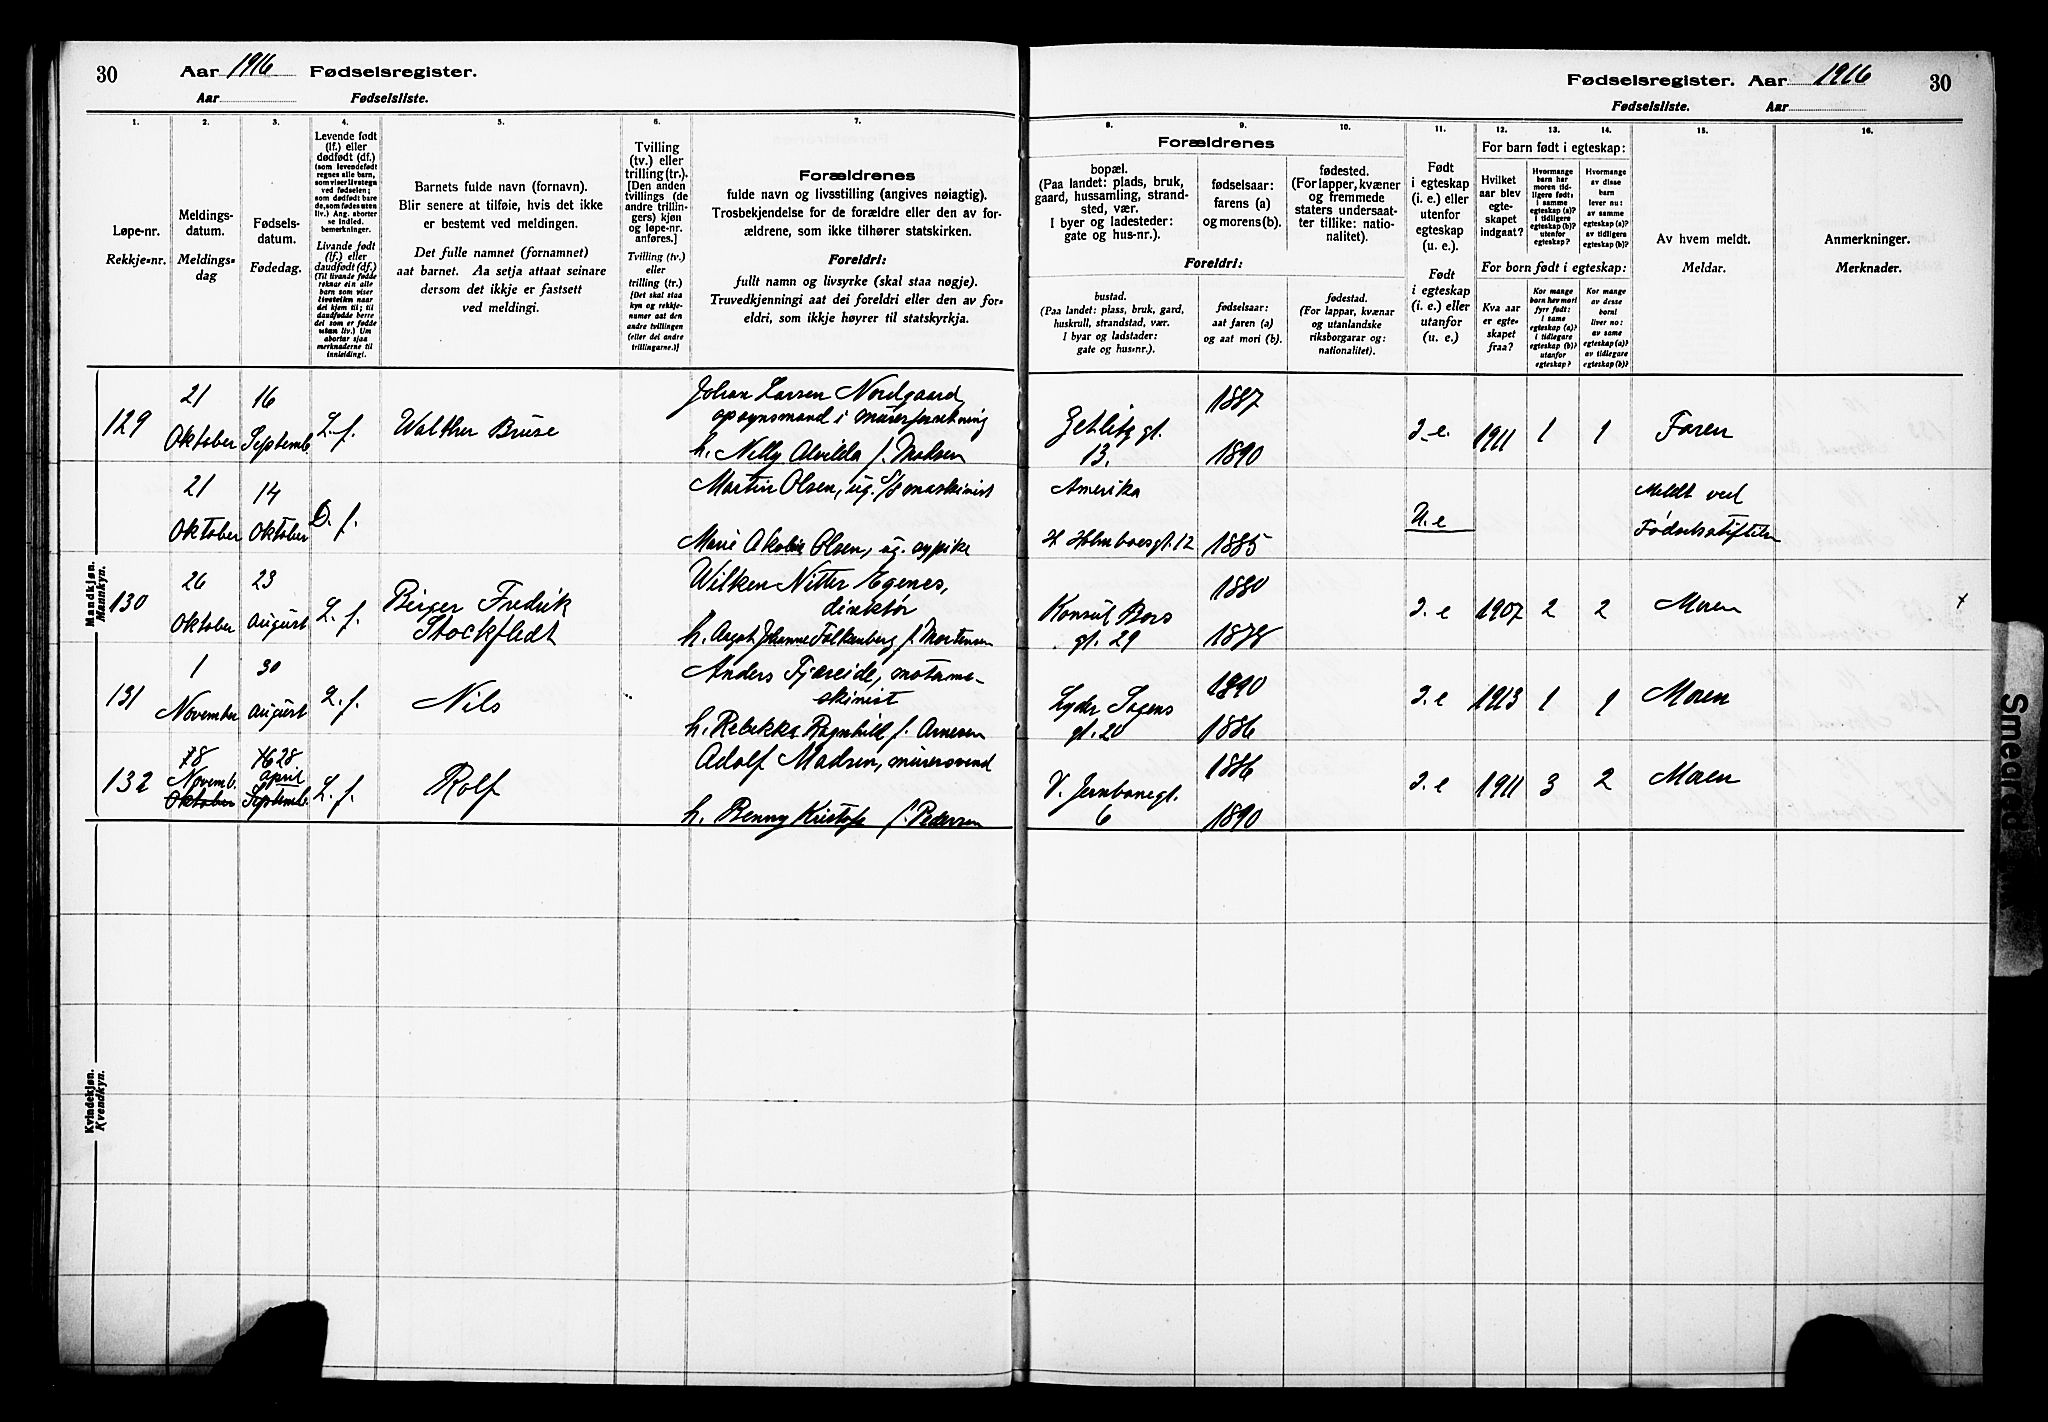 30
Aar 1916 Fødselsregister.
Aar Fødselsliste.
1.
Løpe-nr.
Rekkje-nr.
2.
Meldings-
datum.
Meldings-
dag
3.
Fødsels-
datum.
Fødedag.
4.
Levende født
(lf.) eller
dødfødt (df.)
(som levendefødt
regnes alle barn,
som viser livstegn
ved fødselen;
som dødfødt bare
de, som fødes uten
liv.) Ang. aborter
se indled.
bemerkninger.
Livande født
(lf.) eller
daudfødt (df.)
(Til livande fødde
reknar ein alle
barn som viser
livsteikn naar
dei kjem til; til
daudfødde berre
dei som er fødde
utan liv.) Um
abortar sjaa
merknaderne til
innleidingi.
5.
Barnets fulde navn (fornavn).
Blir senere at tilføie, hvis det ikke
er bestemt ved meldingen.
Det fulle namnet (fornamnet)
aat barnet. Aa setja attaat seinare
dersom det ikkje er fastsett
ved meldingi.
6.
Tvilling
(tv.) eller
trilling (tr.).
[Den anden
tvillings (de
andre trillin-
gers) kjøn
og løpe-nr.
anføres.]
Tvilling (tv.)
eller
trilling (tr.)
[Det skal staa
kyn og rekkje-
numer aat den
andre tvillingen
(eller dei andre
trillingarne.)]
7.
Forældrenes
fulde navn og livsstilling (angives nøiagtig).
Trosbekjendelse for de forældre eller den av for-
ældrene, som ikke tilhører statskirken.
Foreldri:
fullt namn og livsyrke (skal staa nøgje).
Truvedkjenningi aat dei foreldri eller den av for-
eldri, som ikkje høyrer til statskyrkja.
Mandkjøn.
Mannkyn.
129
21
Oktober
16
Septemb.
L. f.
Walther Bruse
Johan Larsen Nordgaard,
opsynsmand i murerforretning
h. Nelly Alvilda f. Madsen
21
Oktober
14
Oktober
D. f.
Martin Olsen, ug. S/S maskinist
Marie Olsen, ug. sypike
130
26
Oktober
23
August
L. f.
Birger Fredrik
Stockfledt
Wilken Nitter Egenes,
direktør
h. Aagot Johanne Falkenberg f. Mortensen
131
1
November
30
August
L. f.
Nils
Anders Fjæreide, motorma-
skinist
h. Rebekka Ragnhild f. Arnesen
132
8
Novemb.
Oktober
28
April
Septemb.
L. f.
Rolf
Adolf Madsen, murersvend
h. Benny f. Pedersen
Kvindekjøn.
Kvendkyn.
Fødselsregister. Aar 1916
30
Fødselsliste. Aar
8.
Forældrenes
bopæl.
(Paa landet: plads, bruk,
gaard, hussamling, strand-
sted, vær.
I byer og ladesteder:
gate og hus-nr.).
Foreldri:
bustad.
(Paa landet: plass, bruk, gard,
huskrull, strandstad, vær.
I byar og ladstader:
gate og hus-nr.).
9.
fødselsaar:
farens (a)
og morens (b).
fødselsaar:
aat faren (a)
og aat mori (b).
10.
fødested.
(For lapper, kvæner
og fremmede
staters undersaat-
ter tillike: natio-
nalitet).
fødestad.
(For lappar, kvænar
og utanlandske
riksborgarar og:
nationalitet).
11.
Født
i egteskap
(i. e.) eller
utenfor
egteskap
(u. e.).
Født
i egteskap
(i. e.) eller
utanfor
(u. e.)
12.
13.
14.
For barn født i egteskap:
Hvilket
aar blev
egte-
skapet
indgaat?
Hvormange
barn har
moren tid-
ligere født:
i samme
egteskap (a)?
i tidligere
egteskap (b)?
utenfor
egteskap?
Hvormange
av disse
barn
lever nu:
av samme
egteskap (a)?
av tidligere
egteskap (b)?
For born født i egteskap:
Kva aar
er egte-
skapet
fraa?
Kor mange
born hev mori
fyrr født:
i same
egteskap (a)?
i tidlegare
egteskap (b)?
utanfor
egteskap?
Kor mange
av desse
borni
liver no:
av same
egteskap (a)?
av tidlegare
egteskap (b)?
15.
Av hvem meldt.
Meldar.
16.
Anmerkninger.
Merknader.
Zetlitz gt.
13.
1887
1890
I. e.
1911
1
1
Faren
Amerika
H. Holmboes gt. 12
1885
U. e
Meldt ved
Fødselsstiftelsen
Konsul Bors
gt. 29
1880
1878
I. e
1907
2
2
Moren
Lyder Sagens
gt. 20
1890
1886
I. e
1913
1
1
Moren
V. Jernbanegt.
6
1886
1890
I. e
1911
3
2
Moren
Smedred